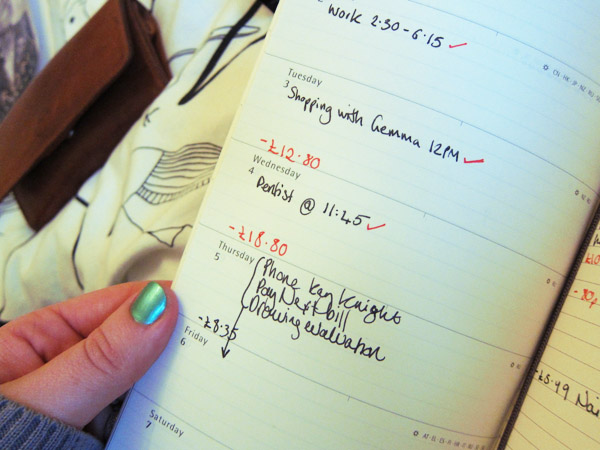 Work 2.30-6.15
Tuesday
3
Shopping with Gemma 12PM
-£12.80
Wednesday
4
Dentist @ 11:45
-£18.80
Thursday
5
Phone Kay Knight
Pay Next bill
Drawing evaluation
-£8.35
Friday
6
Saturday
7